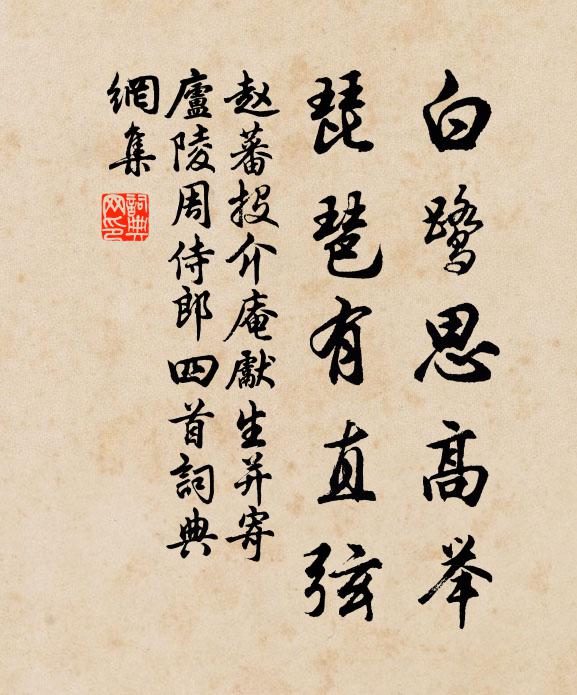 白鹭思高举
琵琶有直弦
赵蕃投介庵獻生并寄
廬陵周侍郎四首詞典
網集
詞典網印